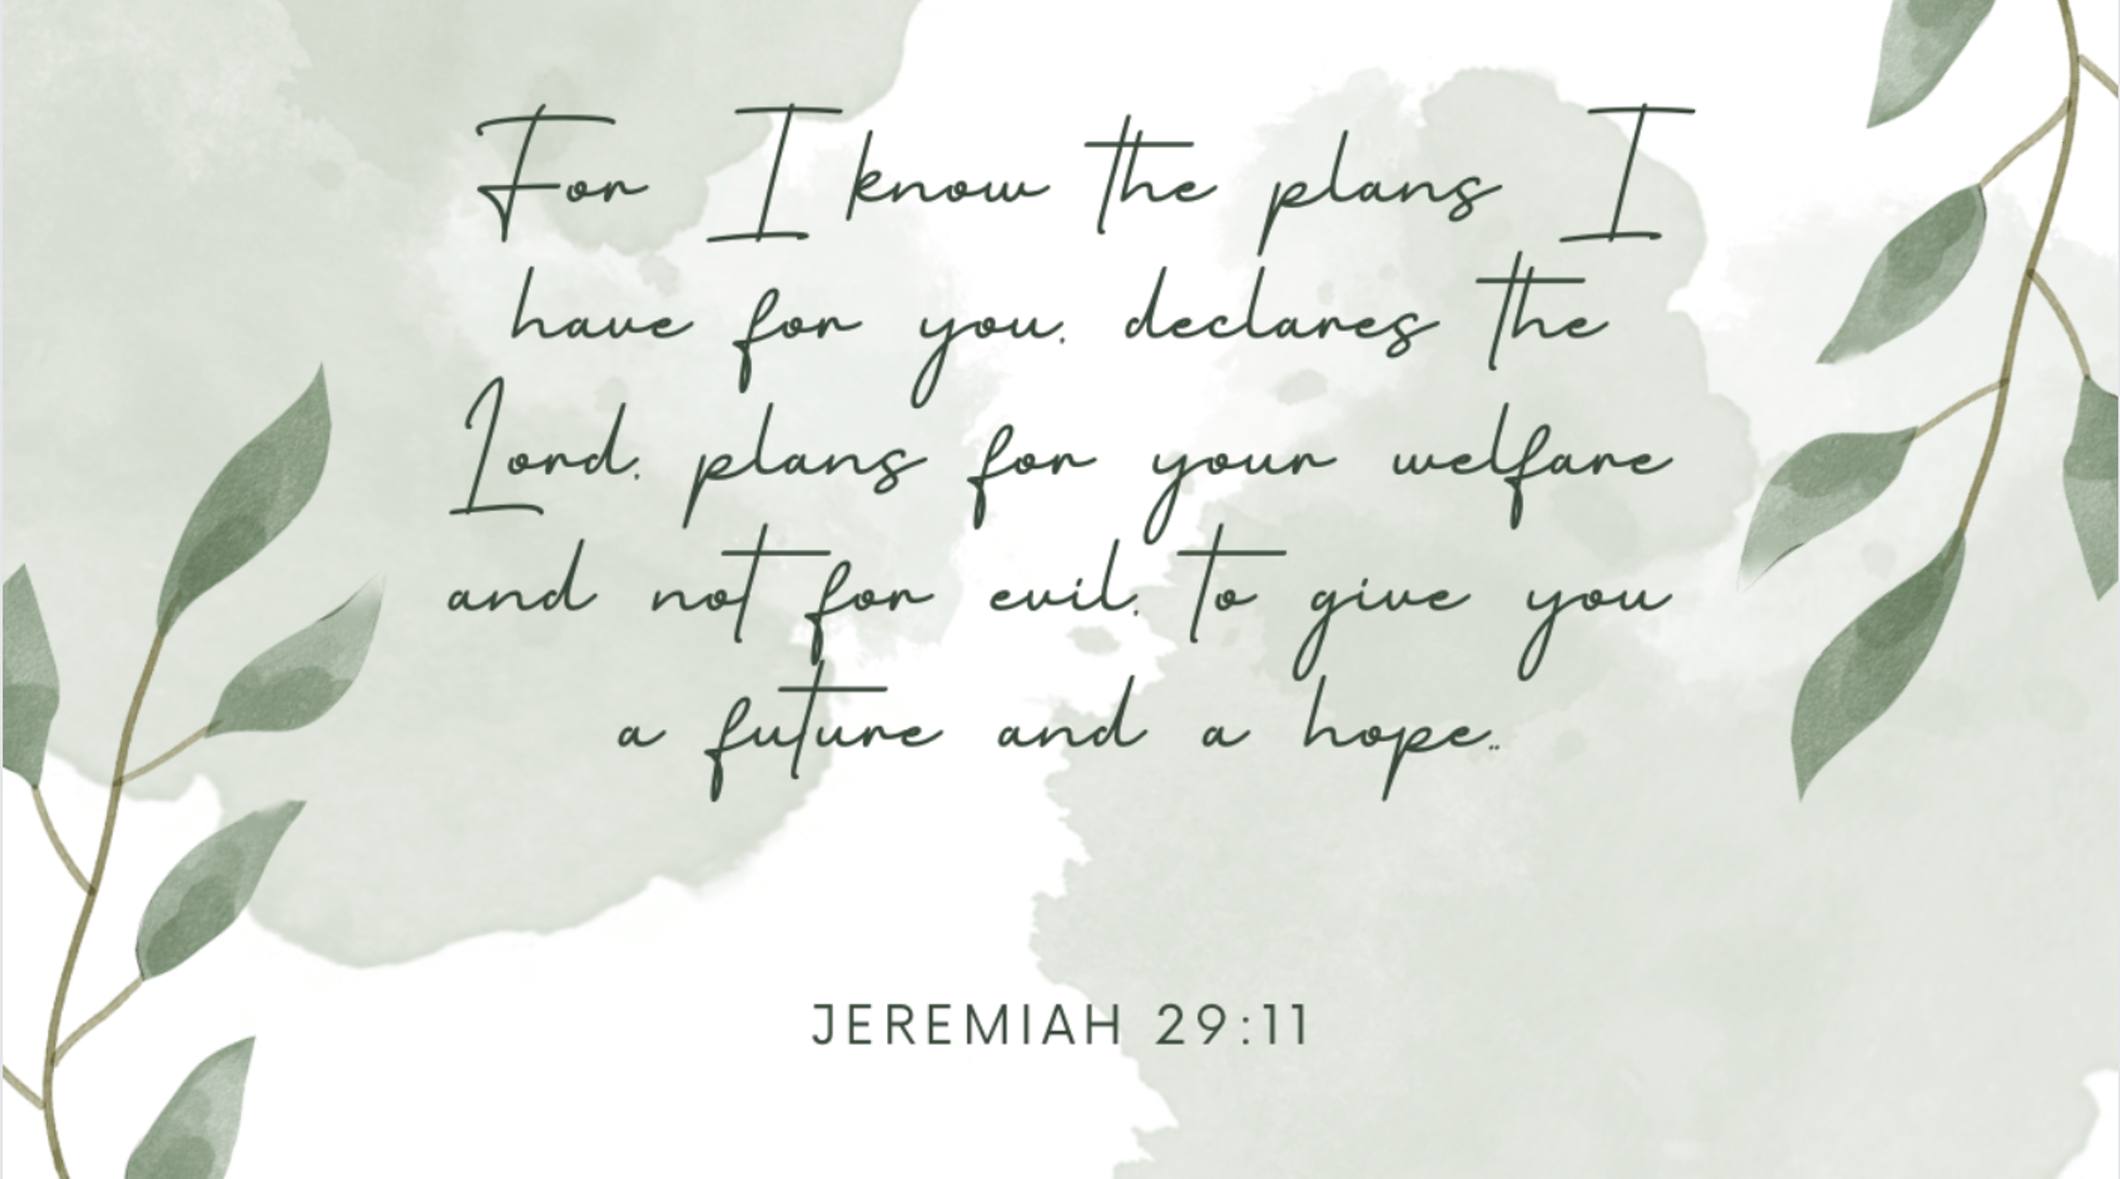 For I know the plans I
have for you, declares the
Lord, plans for your welfare
and not for evil, to give you
a future and a hope..
JEREMIAH 29:11